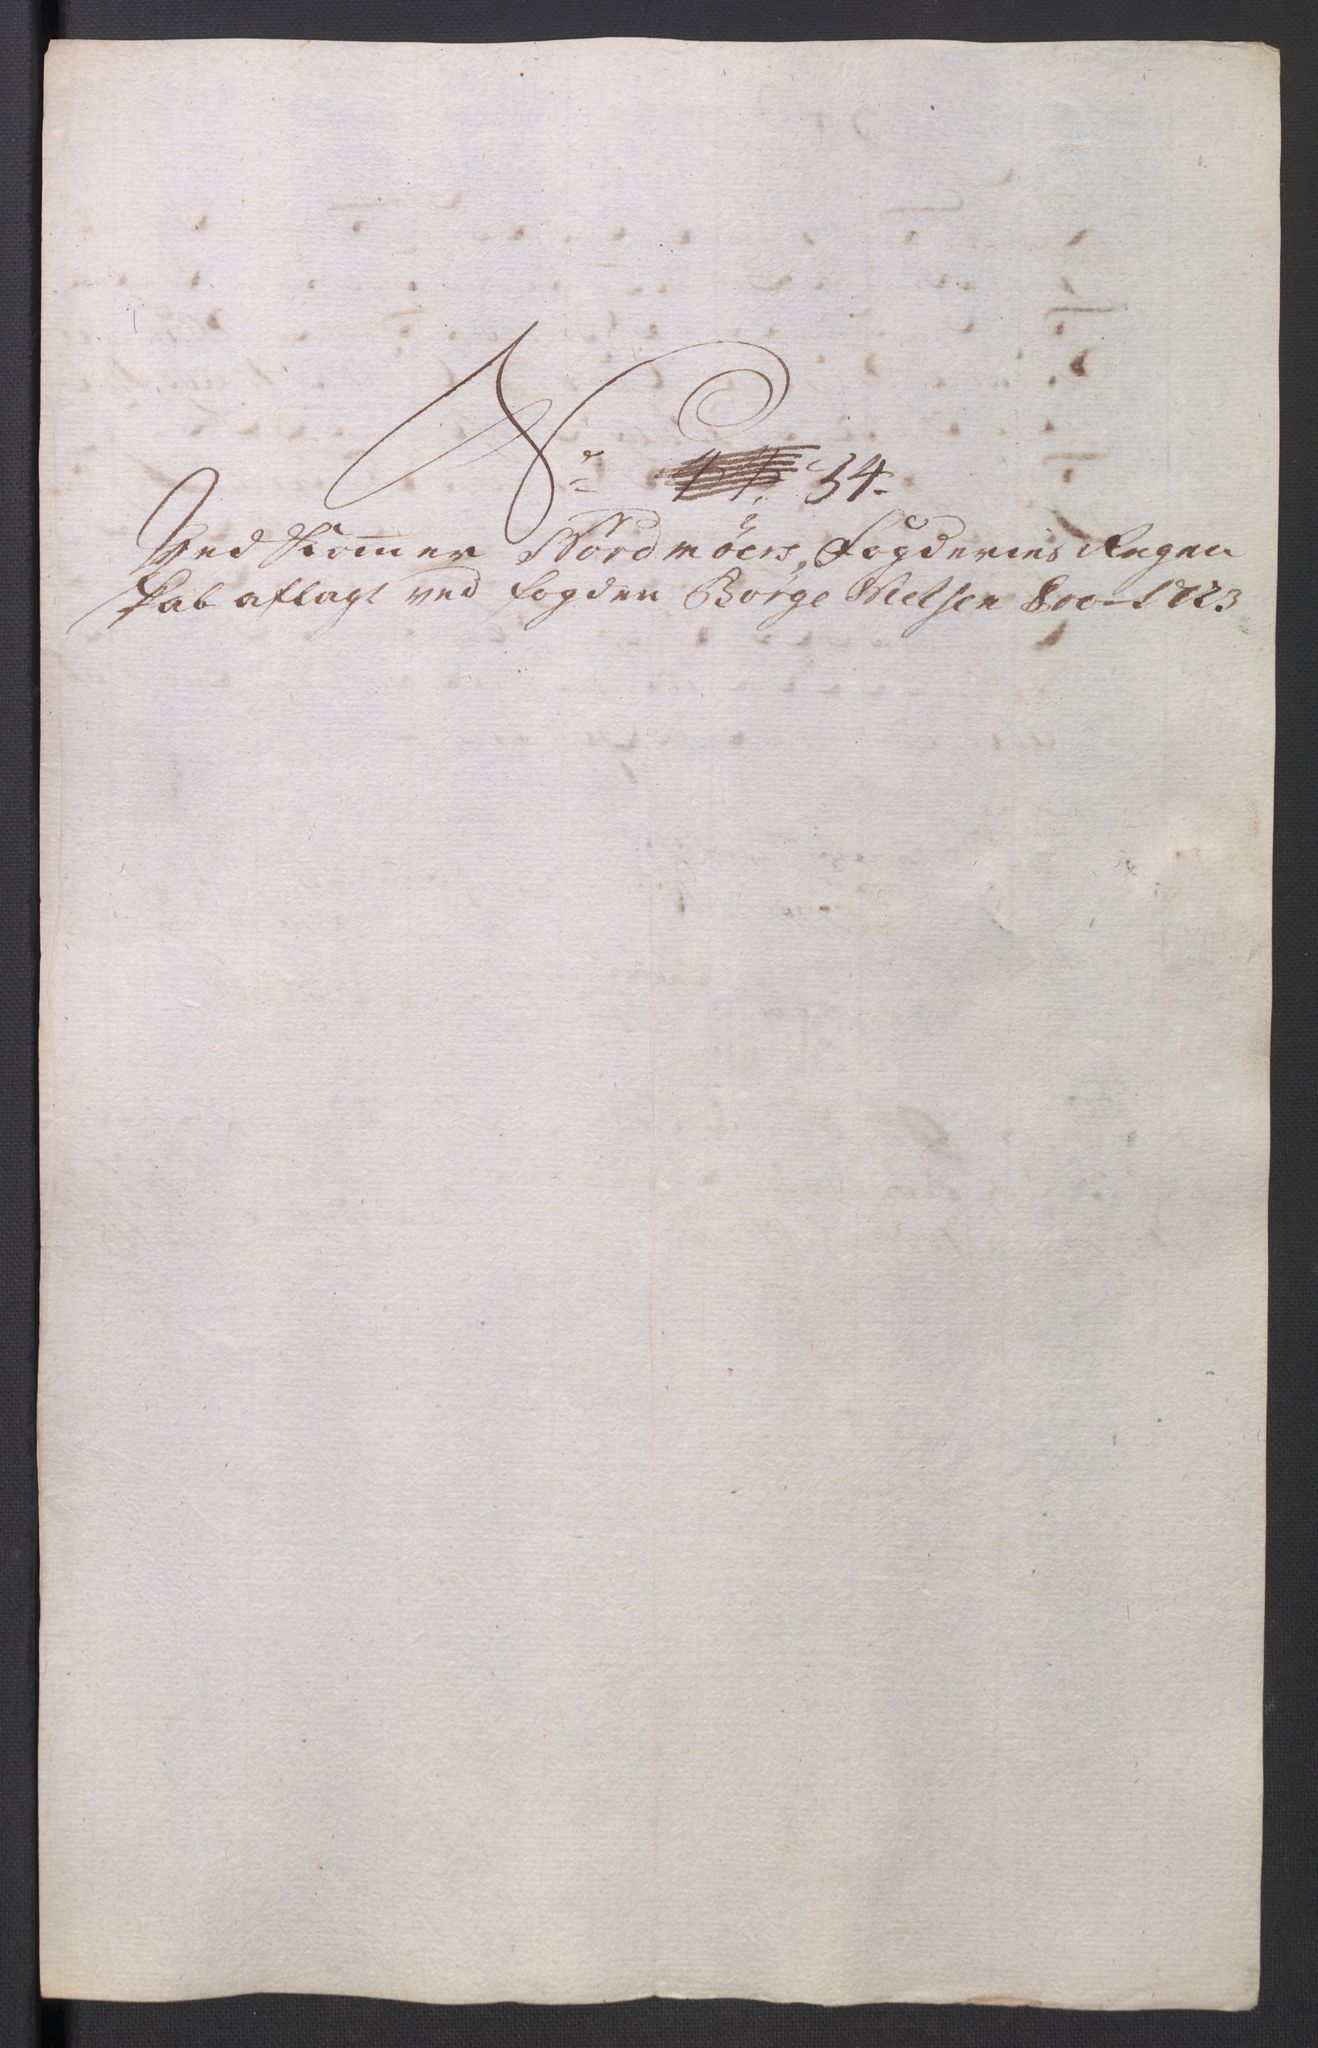 No 34.
Ved Kommer Nordmöers Fogderies Regen
skab aflagt ved fogden Børge Nielsen 1723